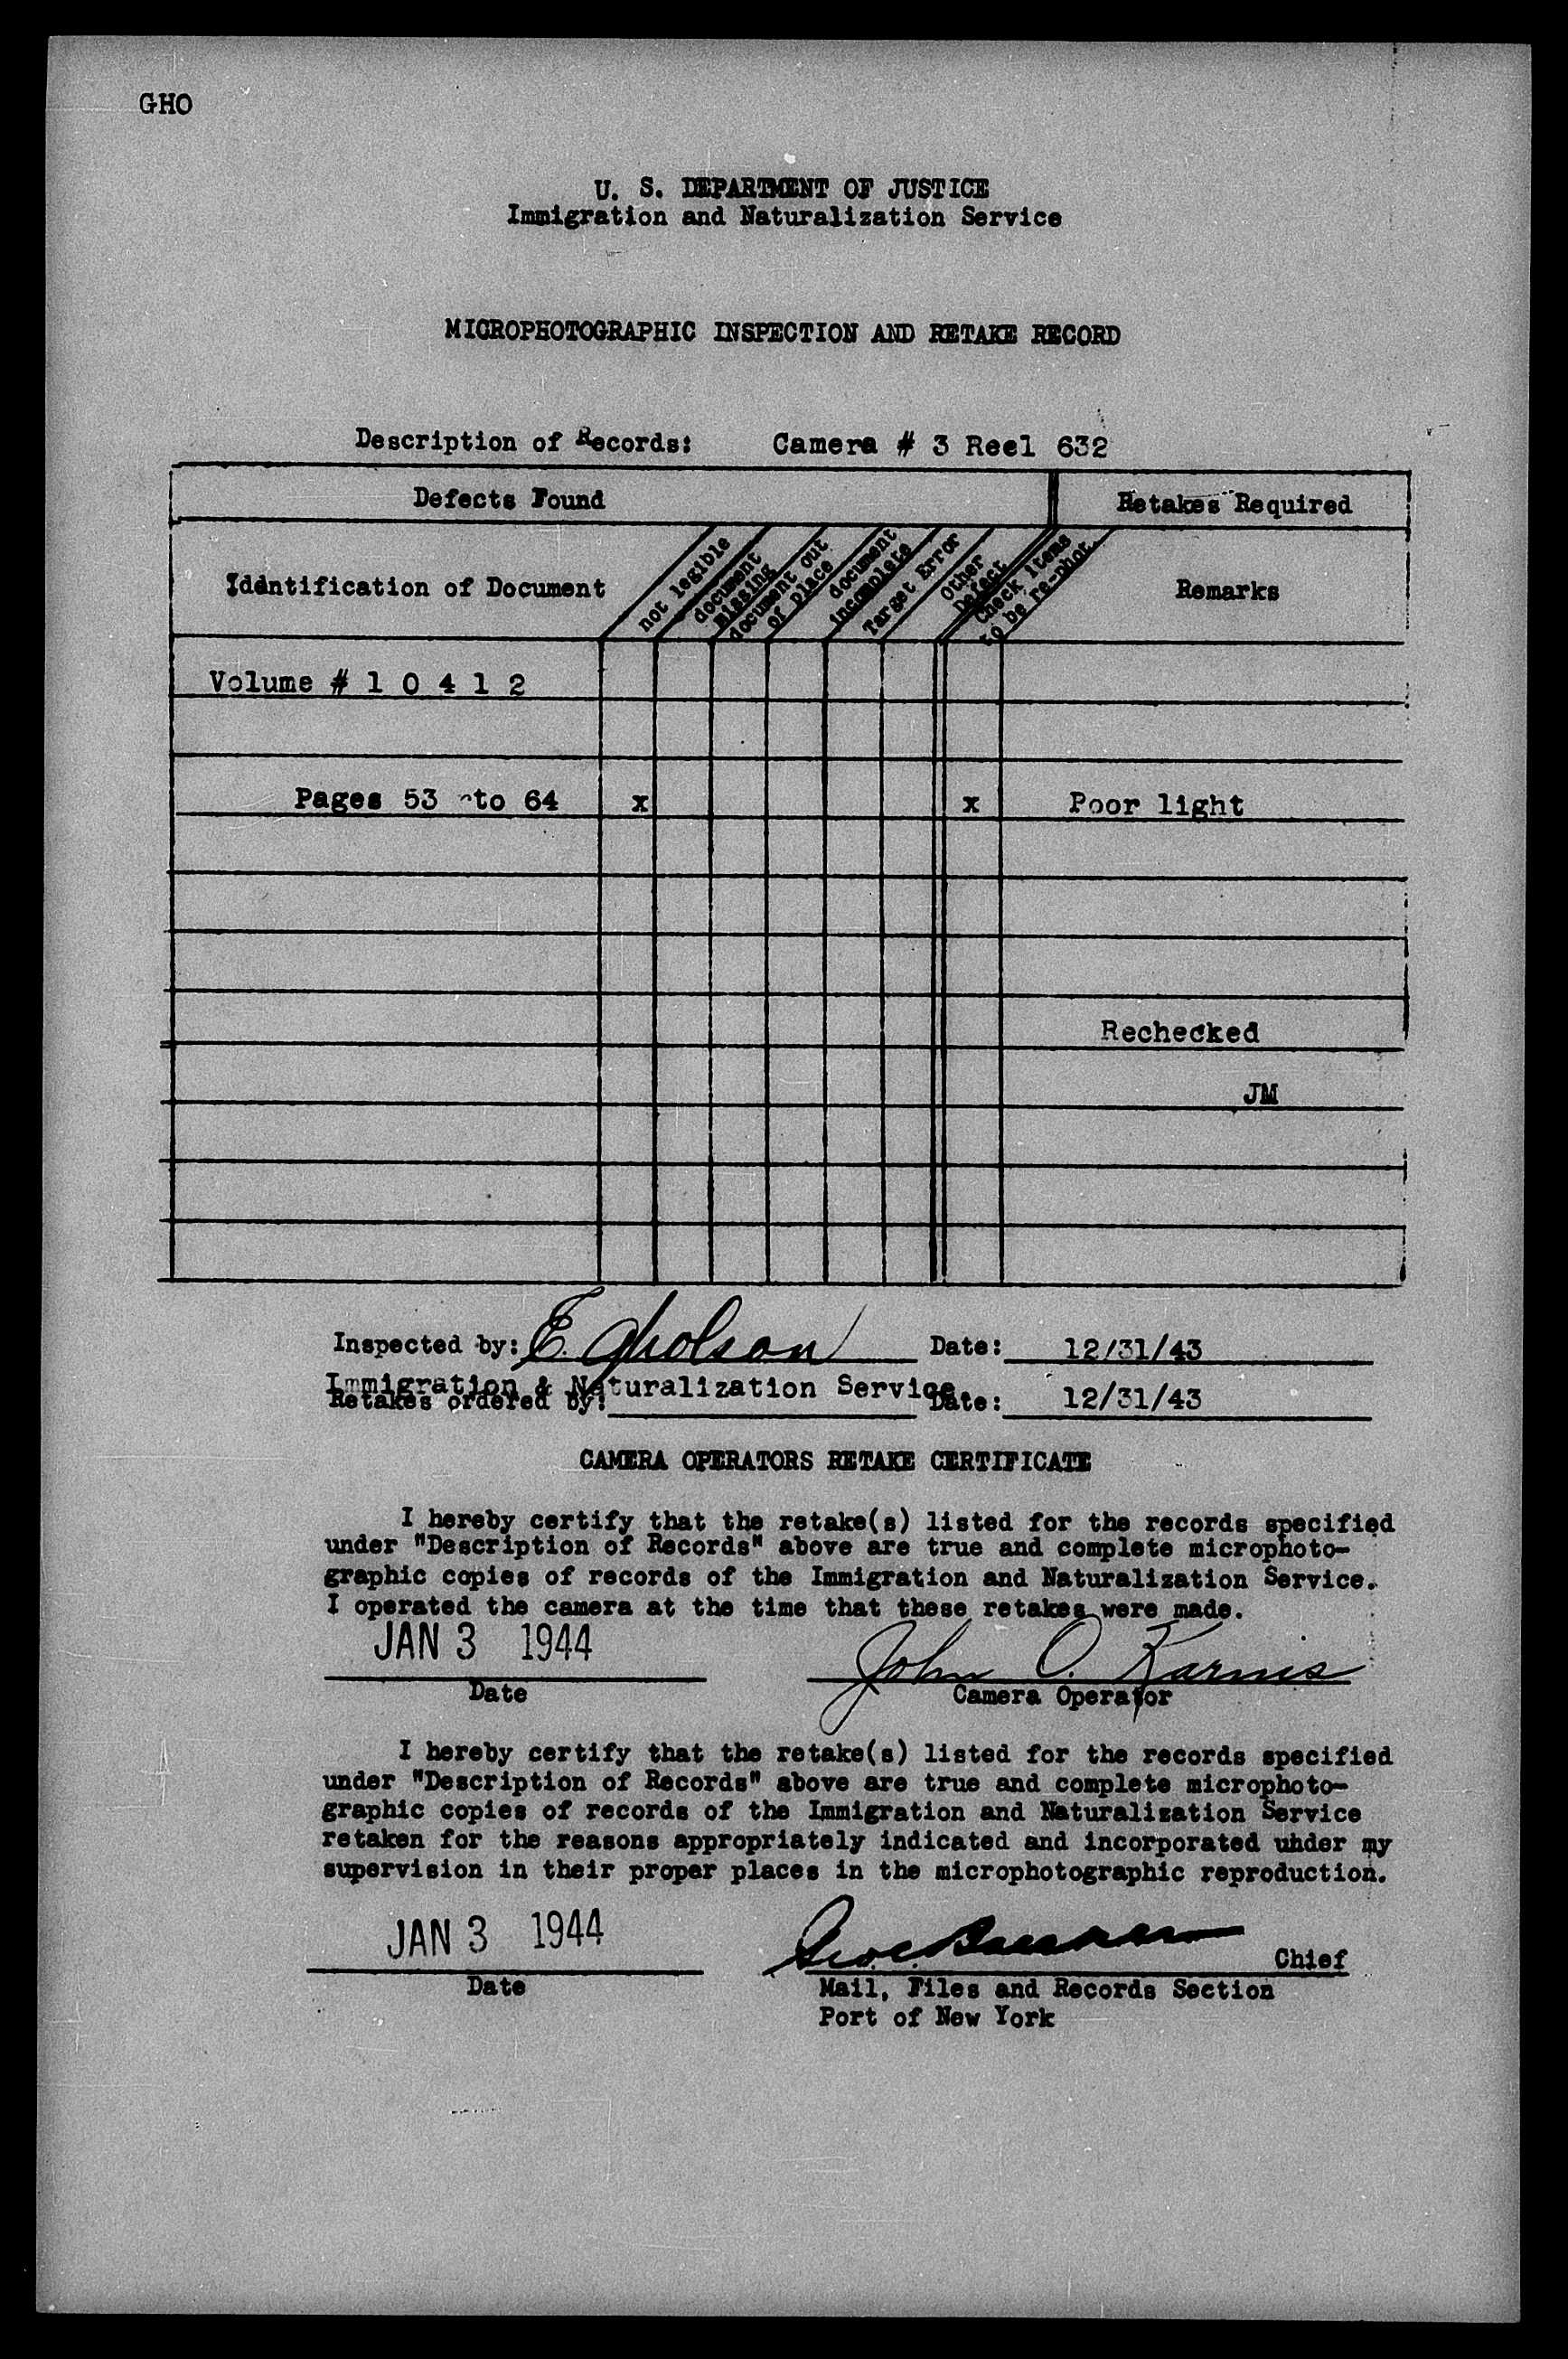 GHO
U. S. DEPARTMENT OF JUSTICE
Immigration and Naturalization Service
MICROPHOTOGRAPHIC INSPECTION AND RETAKE RECORD
Description of Records: Camera # 3 Reel 632
Defects Found
Retakes Required
Identification of Document
not legible
document
missing
document out
of place
document
incomplete
Target Error
Other
Defect
Check items
to be re-phot.
Remarks
Volume # 1 0 4 1 2
Pages 53 to 64 x x Poor light
Rechecked
JM
Inspected by: E. Gholson Date: 12/31/43
Immigration & Naturalization Service.
Retakes ordered by: Date: 12/31/43
CAMERA OPERATORS RETAKE CERTIFICATE
I hereby certify that the retake(s) listed for the records specified
under "Description of Records" above are true and complete microphoto-
graphic copies of records of the Immigration and Naturalization Service.
I operated the camera at the time that these retakes were made.
JAN 3 1944 John O. Karnis
Date Camera Operator
I hereby certify that the retake(s) listed for the records specified
under "Description of Records" above are true and complete microphoto-
graphic copies of records of the Immigration and Naturalization Service
retaken for the reasons appropriately indicated and incorporated uhder my
supervision in their proper places in the microphotographic reproduction.
JAN 3 1944 Chief
Date Mail, Files and Records Section
Port of New York